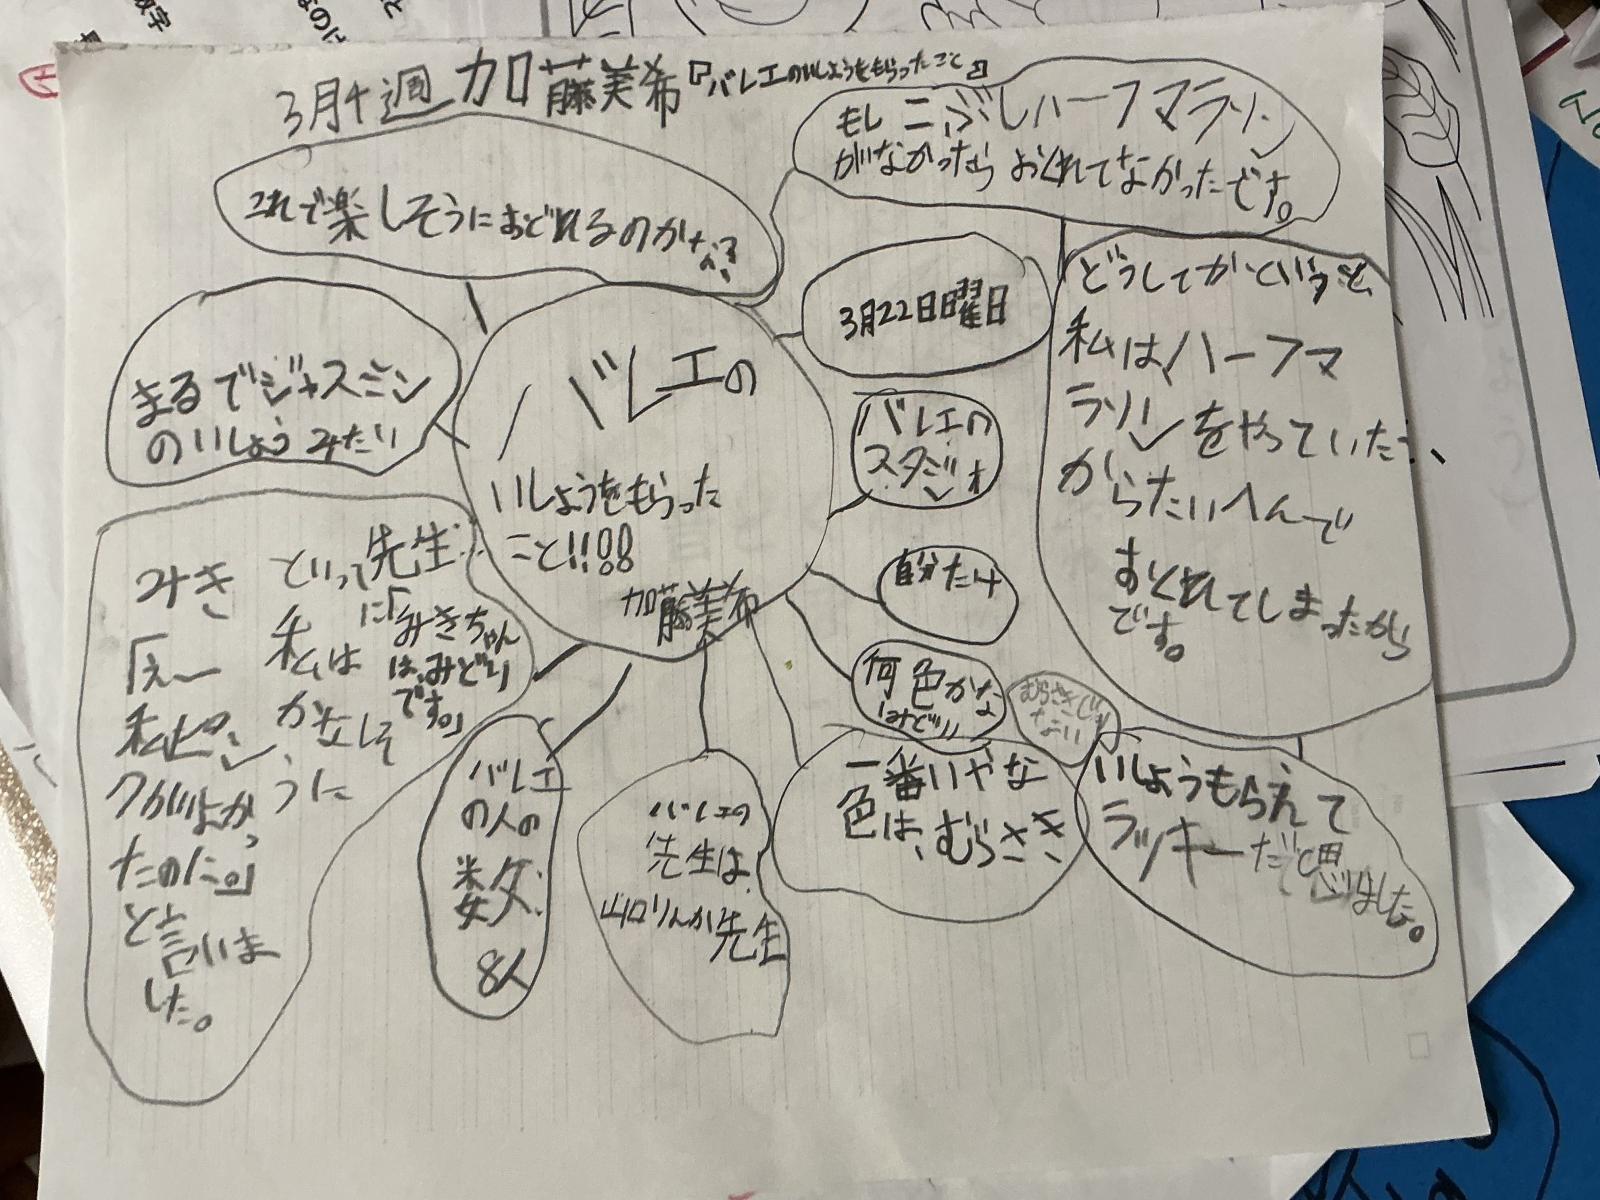 3月4週 加藤美希『バレエのいしょうをもらったこと』
もし こぶしハーフマラソン
がなかったら おくれてなかったです。
これで楽しそうにおどれるのかな
3月22日日曜日
どうしてかというと、
私はハーフマ
ラソンをやっていた
からたいへんで
おくれてしまったから
です。
まるでジャスミン
のいしょうみたい
バレエの
いしょうをもらった
こと!!!!
加藤美希
バレエの
スタジオ
自分だけ
何色かな
みどり
むらさきじゃ
ない
一番いやな
色は、むらさき
いしょうもらえて
ラッキーだと思いました。
といって先生
に「みきちゃん
は、みどり
です。」
私は
かなしそ
うに
みき
「えー
私ピン
クがよかっ
たのに。」
と言いま
した。
バレエ
の人の
数
8人
バレエの
先生は、
山口りんか先生